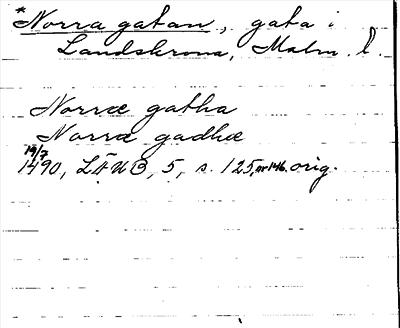 *Norra gatan, gata i
Landskrona, Malm. l.
Norræ gatha
Norræ gadhæ
19/7
1490, LÄUB, 5, s. 125, nr 146. orig.